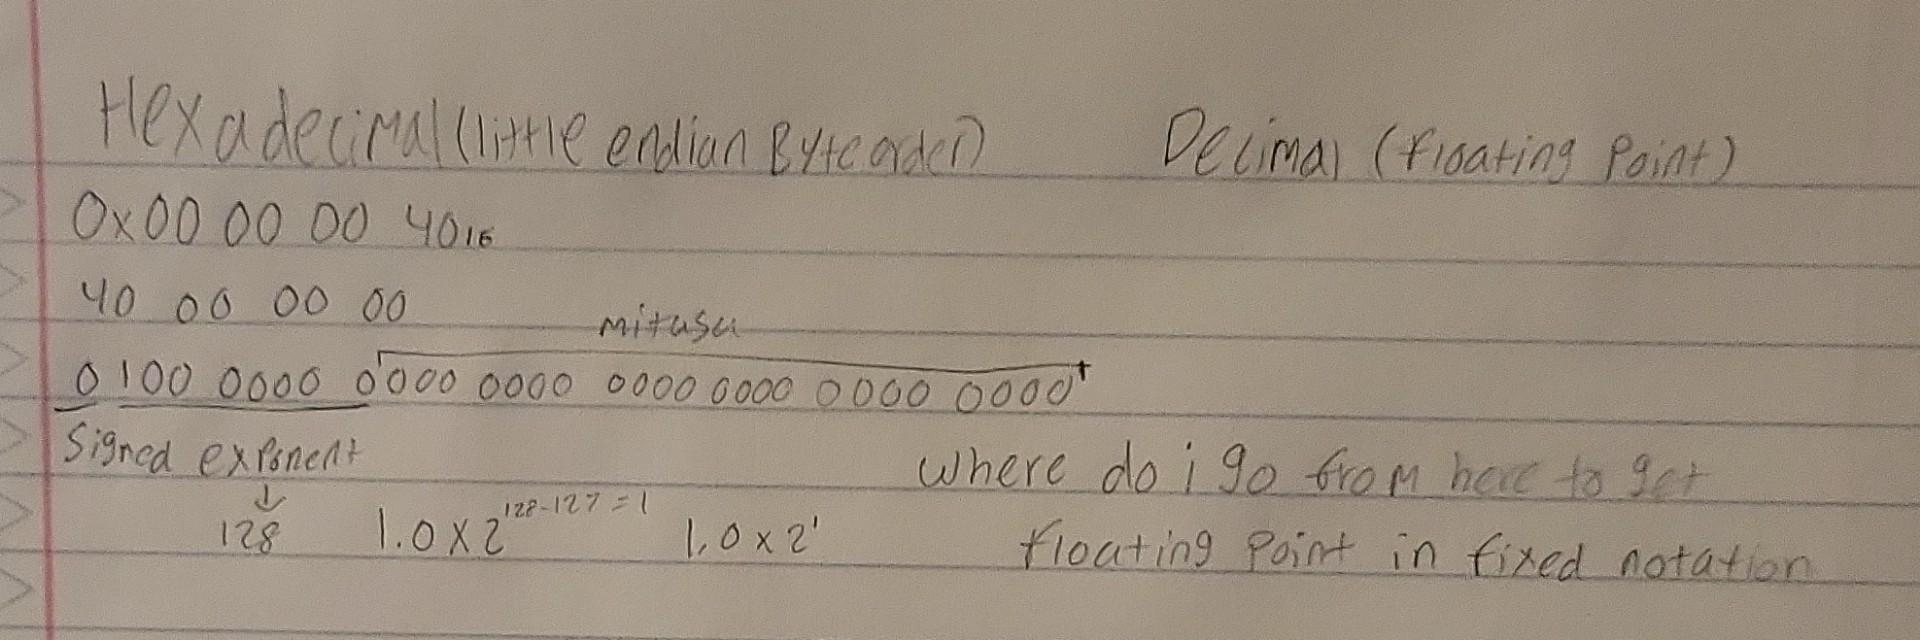 Hexadecimal (little endian Byte order) Decimal (floating Point)
0x00 00 00 40₁₆
40 00 00 00
mitusa
0 100 0000 0 000 0000 0000 0000 0000 0000
Signed exponent
where do i go from here to get
↓
128 1.0 x 2¹²⁸⁻¹²⁷ ⁼ ¹ 1.0 x 2¹
floating Point in fixed notation